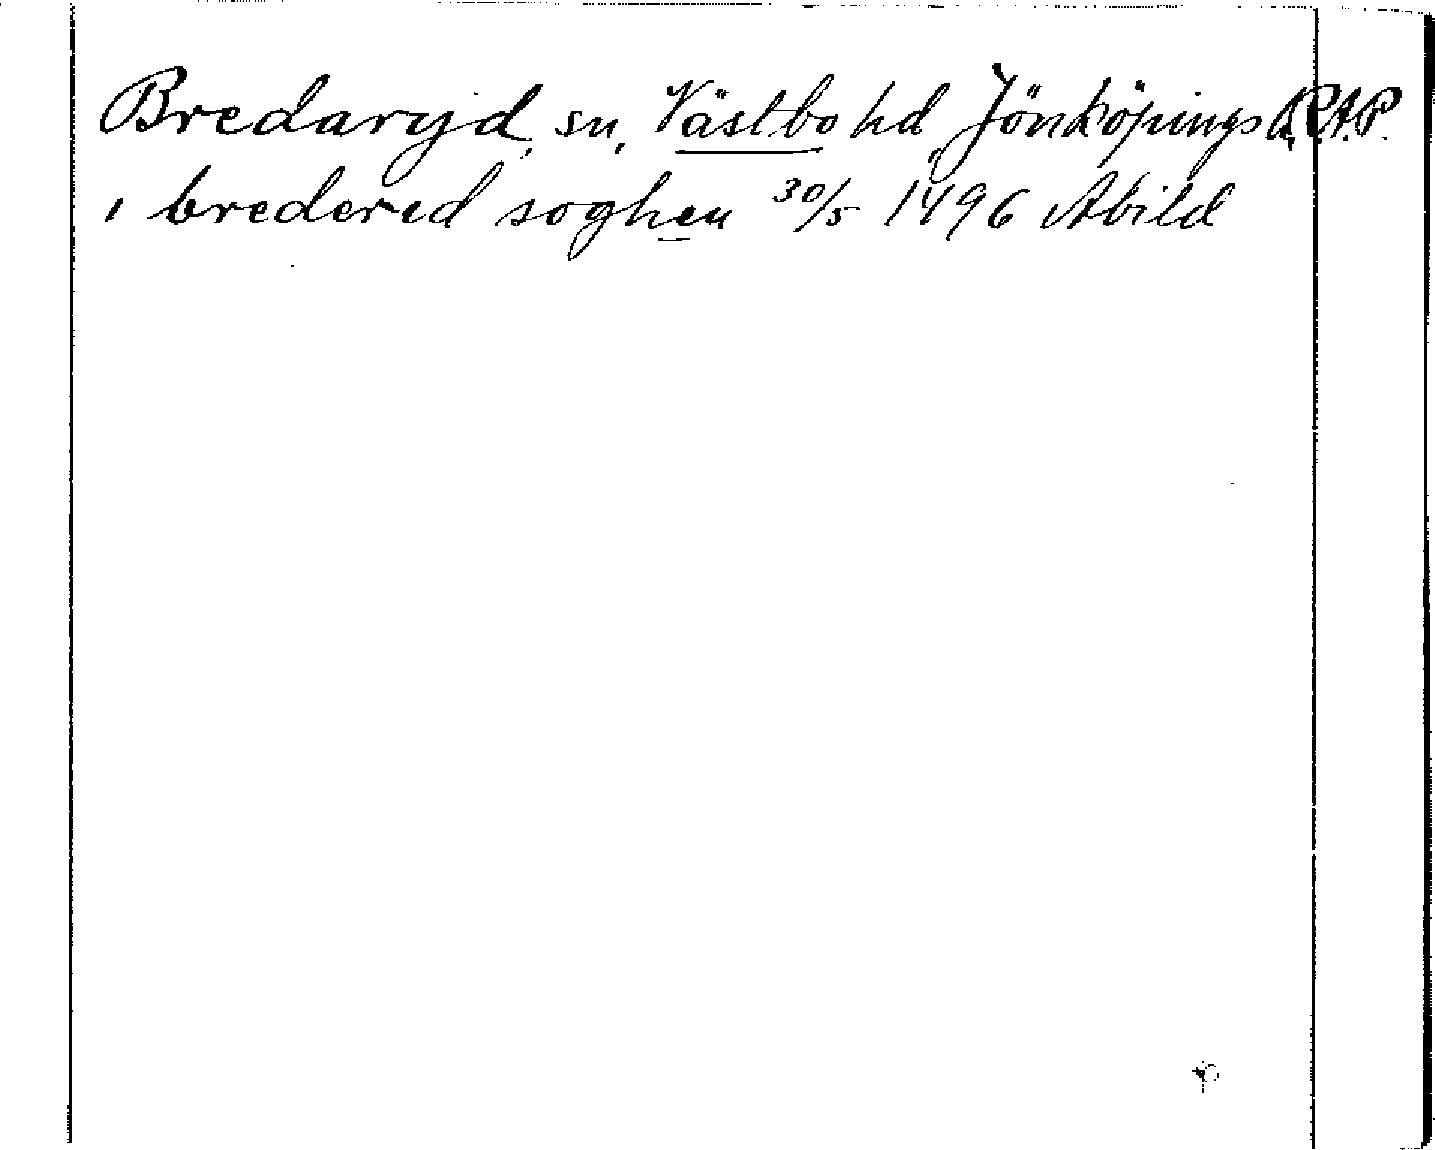 Bredaryd, sn, Västbo hd Jönköpings l. RAP.
i brederid soghen 30/5 1496 Abild